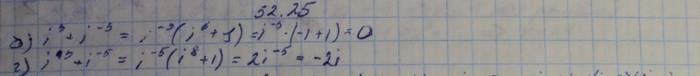 52.25
б) i³ + i⁻³ = i⁻³(i⁶ + 1) = i⁻³·(-1+1) = 0
г) i¹³ + i⁻⁵ = i⁻⁵(i⁸ + 1) = 2i⁻⁵ = -2i